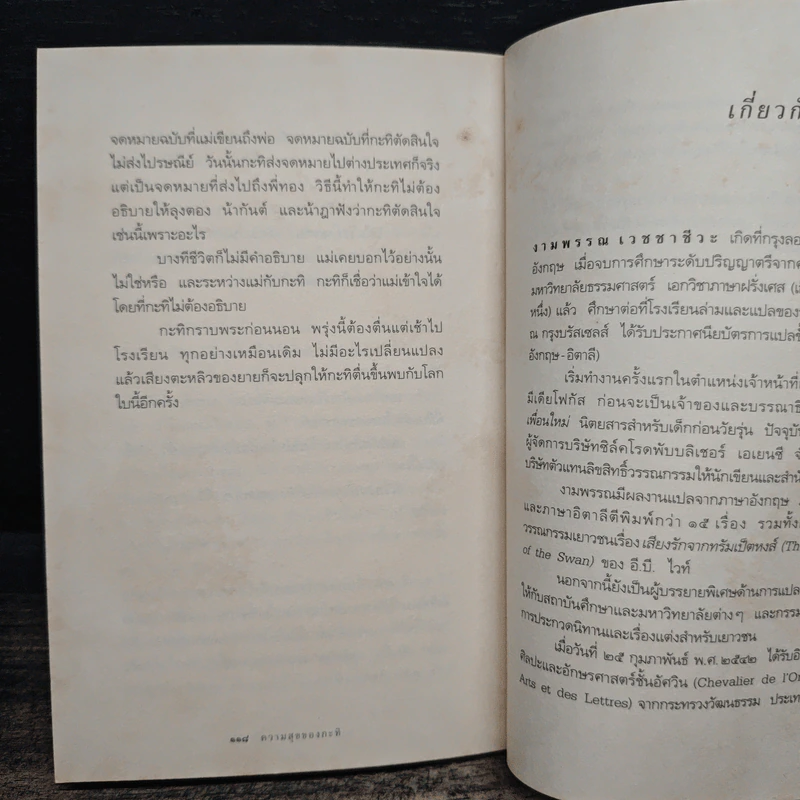 จดหมายฉบับที่แม่เขียนถึงพ่อ จดหมายฉบับที่กะทิตัดสินใจ
ไม่ส่งไปรษณีย์ วันนั้นกะทิส่งจดหมายไปต่างประเทศก็จริง
แต่เป็นจดหมายที่ส่งไปถึงพี่ทอง วิธีนี้ทำให้กะทิไม่ต้อง
อธิบายให้ลุงตอง น้ากันต์ และน้าฎาฟังว่ากะทิตัดสินใจ
เช่นนี้เพราะอะไร
บางทีชีวิตก็ไม่มีคำอธิบาย แม่เคยบอกไว้อย่างนั้น
ไม่ใช่หรือ และระหว่างแม่กับกะทิ กะทิก็เชื่อว่าแม่เข้าใจได้
โดยที่กะทิไม่ต้องอธิบาย
กะทิกราบพระก่อนนอน พรุ่งนี้ต้องตื่นแต่เช้าไป
โรงเรียน ทุกอย่างเหมือนเดิม ไม่มีอะไรเปลี่ยนแปลง
แล้วเสียงตะหลิวของยายก็จะปลุกให้กะทิตื่นขึ้นพบกับโลก
ใบนี้อีกครั้ง
๑๑๘ ความสุขของกะทิ
เกี่ยวกั
งามพรรณ เวชชาชีวะ เกิดที่กรุงลอ
อังกฤษ เมื่อจบการศึกษาระดับปริญญาตรีจากค
มหาวิทยาลัยธรรมศาสตร์ เอกวิชาภาษาฝรั่งเศส (เ
หนึ่ง) แล้ว ศึกษาต่อที่โรงเรียนล่ามและแปลของ
ณ กรุงบรัสเซลส์ ได้รับประกาศนียบัตรการแปลชั้
อังกฤษ-อิตาลี)
เริ่มทำงานครั้งแรกในตำแหน่งเจ้าหน้าที่
มีเดียโฟกัส ก่อนจะเป็นเจ้าของและบรรณาธิ
เพื่อนใหม่ นิตยสารสำหรับเด็กก่อนวัยรุ่น ปัจจุบัน
ผู้จัดการบริษัทซิล์คโรดพับบลิเชอร์ เอเยนซี จ
บริษัทตัวแทนลิขสิทธิ์วรรณกรรมให้นักเขียนและสำนั
งามพรรณมีผลงานแปลจากภาษาอังกฤษ
และภาษาอิตาลีตีพิมพ์กว่า ๑๕ เรื่อง รวมทั้ง
วรรณกรรมเยาวชนเรื่อง เสียงรักจากทรัมเป็ตหงส์ (Th
of the Swan) ของ อี.บี. ไวท์
นอกจากนี้ยังเป็นผู้บรรยายพิเศษด้านการแปล
ให้กับสถาบันศึกษาและมหาวิทยาลัยต่างๆ และกรรม
การประกวดนิทานและเรื่องแต่งสำหรับเยาวชน
เมื่อวันที่ ๒๕ กุมภาพันธ์ พ.ศ.๒๕๔๒ ได้รับอิ
ศิลปะและอักษรศาสตร์ชั้นอัศวิน (Chevalier de l'Or
Arts et des Lettres) จากกระทรวงวัฒนธรรม ประเท